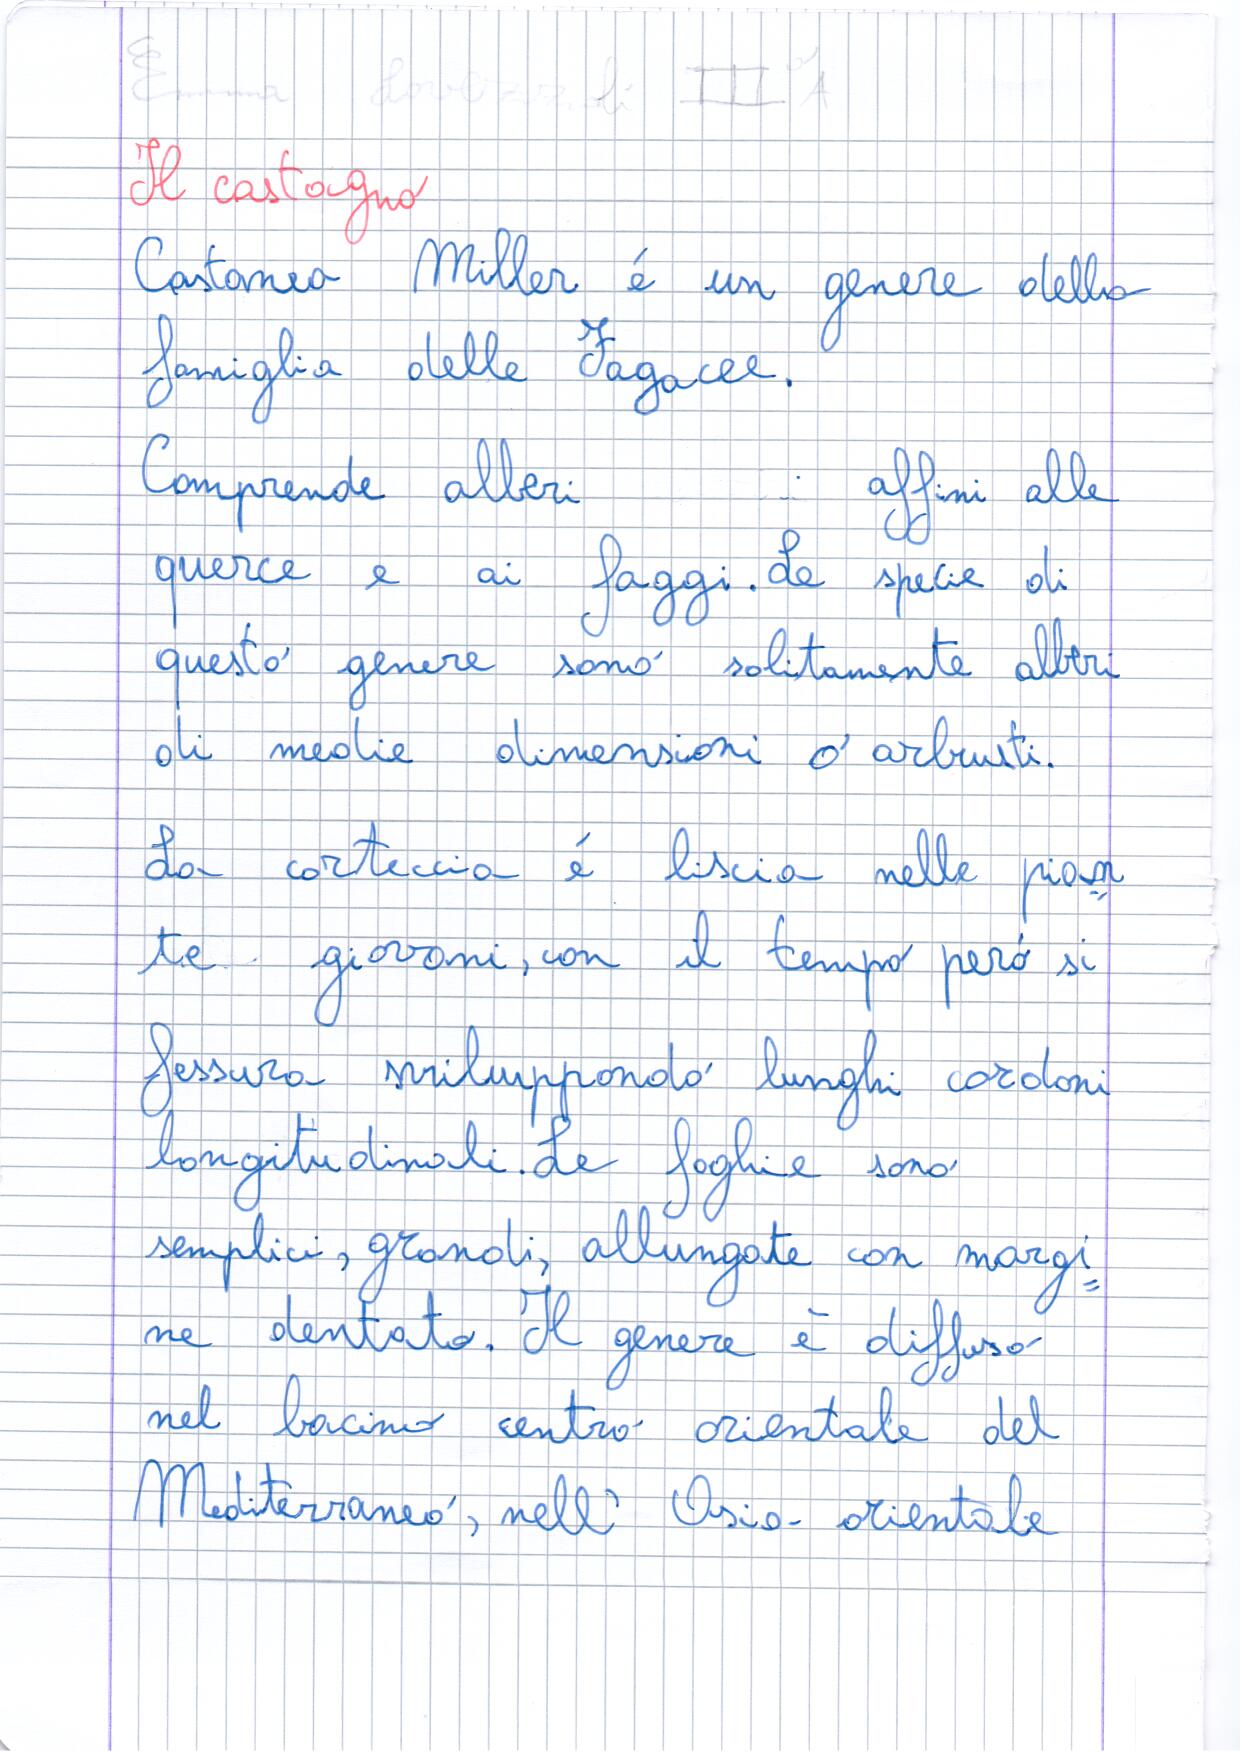 Emma III A
Il castagno
Castanea Miller é un genere della
famiglia delle Fagacee.
Comprende alberi affini alle
querce e ai faggi. Le specie di
questo genere sono solitamente alberi
di medie dimensioni o arbusti.
La corteccia é liscia nelle pian
te giovani, con il tempo peró si
fessura sviluppando lunghi cordoni
longitudinali. Le foglie sono
semplici, grandi, allungate con margi=
ne dentato. Il genere è diffuso
nel bacino centro orientale del
Mediterraneo, nell' Asia orientale